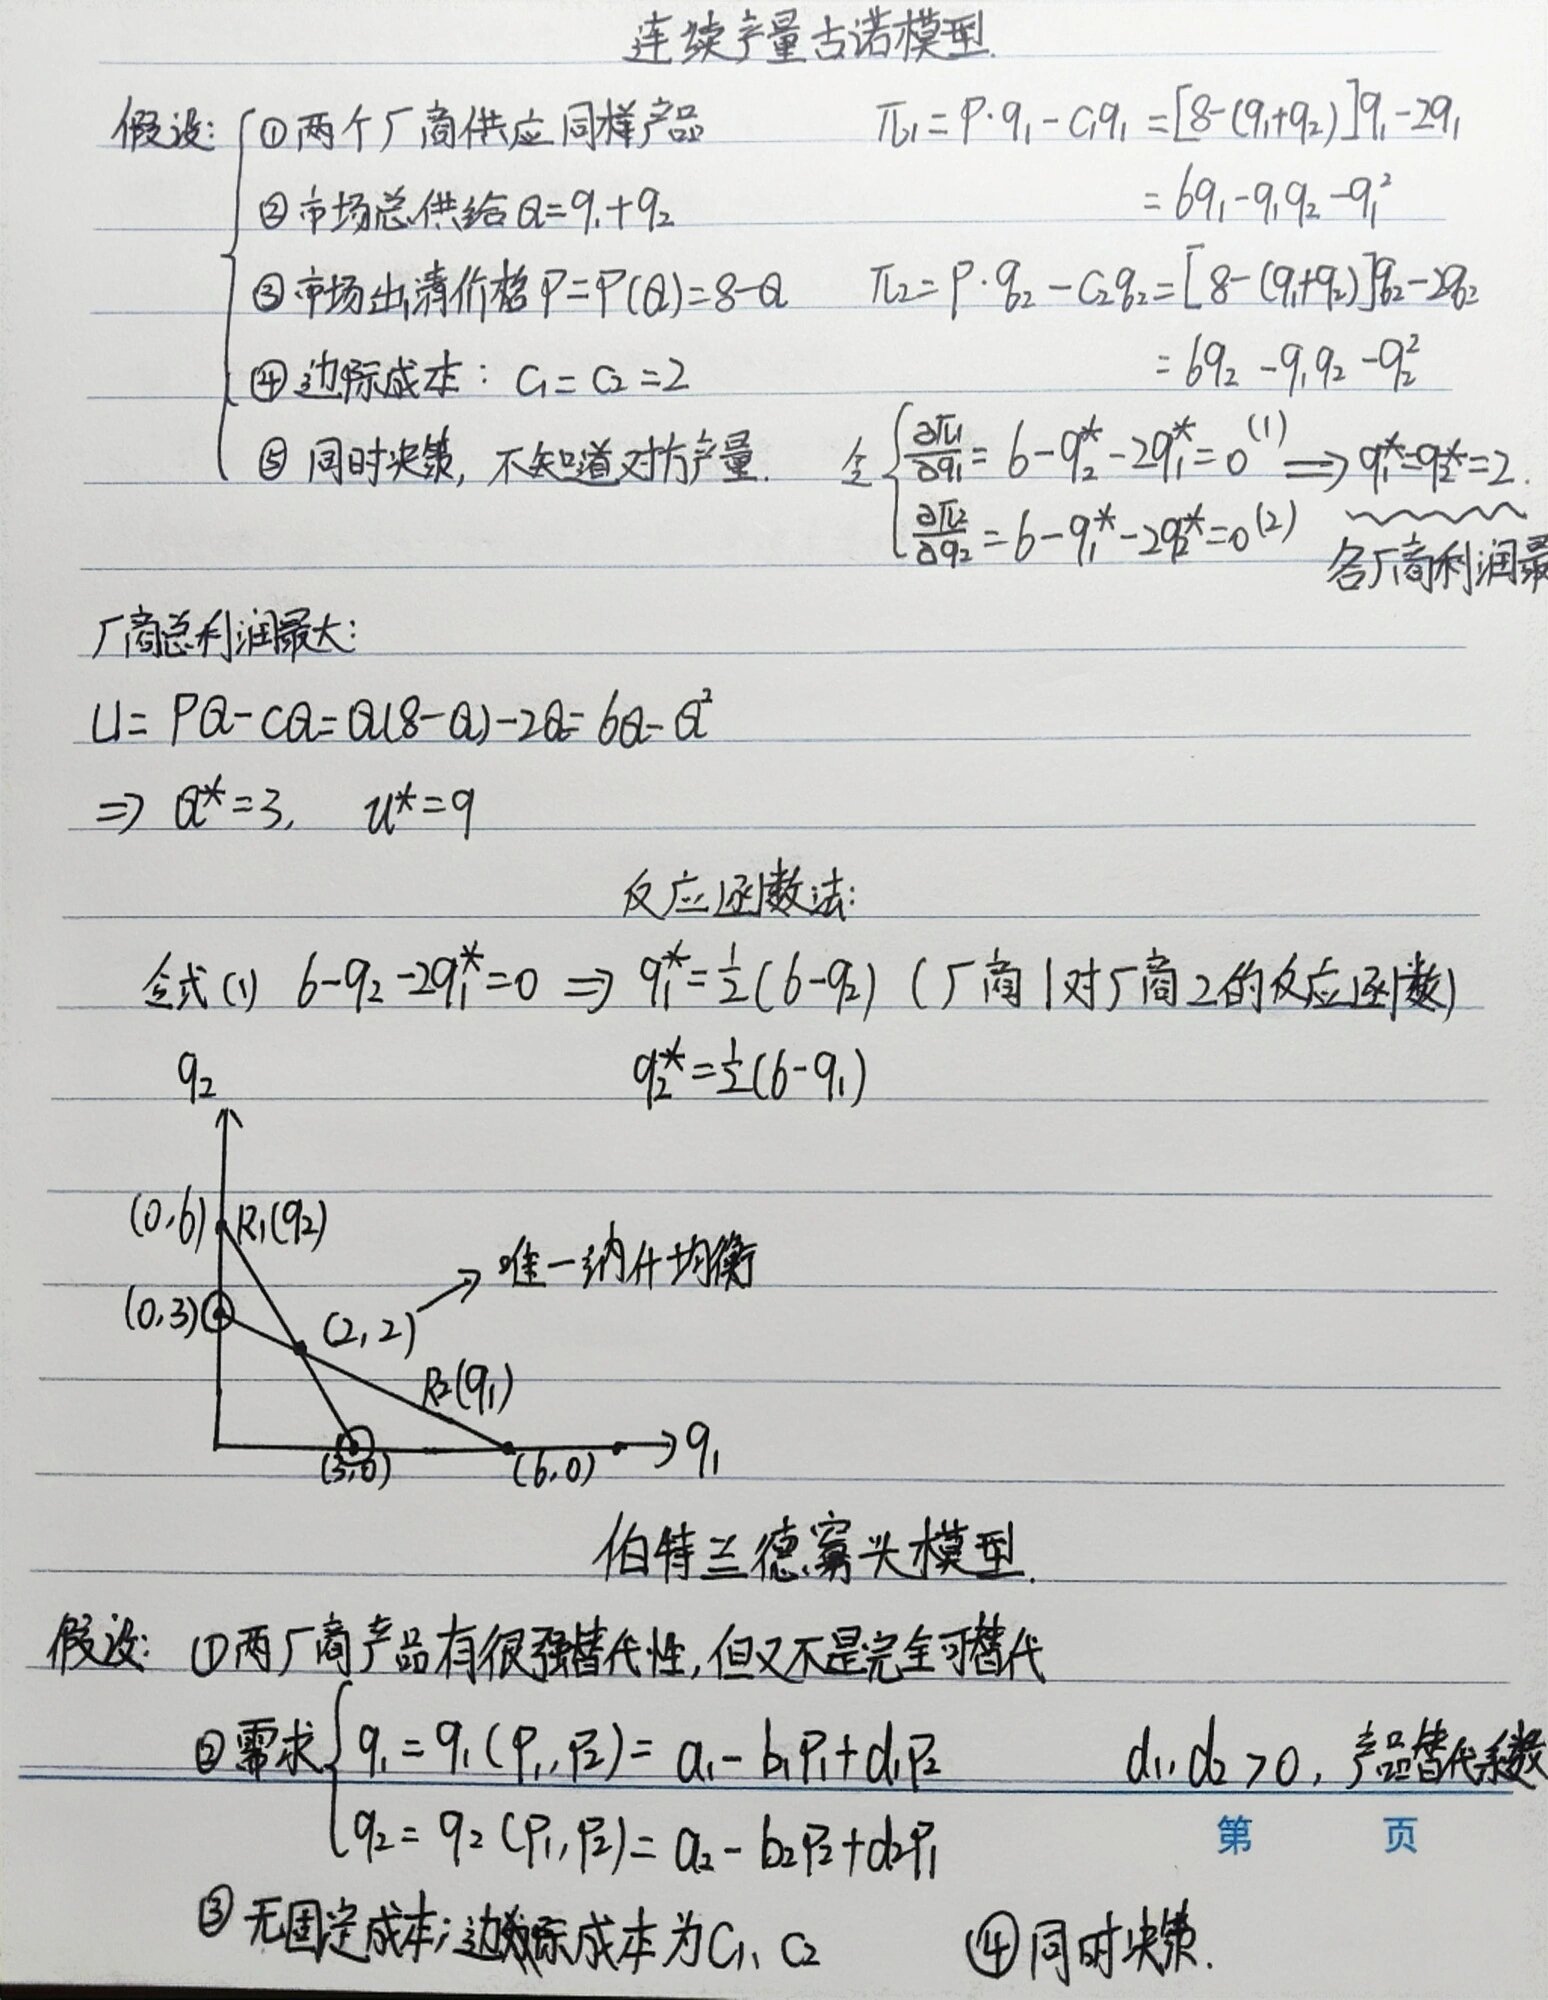 连续产量古诺模型.
假设: ①两个厂商供应同样产品
②市场总供给Q=q₁+q₂
③市场出清价格P=P(Q)=8-Q
④边际成本: C₁=C₂=2
⑤同时决策, 不知道对方产量.
π₁=P·q₁-C₁q₁=[8-(q₁+q₂)]q₁-2q₁
=6q₁-q₁q₂-q₁²
π₂=P·q₂-C₂q₂=[8-(q₁+q₂)]q₂-2q₂
=6q₂-q₁q₂-q₂²
令 { ∂π₁/∂q₁=6-q₂*-2q₁*=0 (1) ⇒ q₁*=q₂*=2.
∂π₂/∂q₂=6-q₁*-2q₂*=0 (2)
各厂商利润最
厂商总利润最大:
U=PQ-CQ=Q(8-Q)-2Q=6Q-Q²
⇒ Q*=3, u*=9
反应函数法:
令式(1) 6-q₂-2q₁*=0 ⇒ q₁*=½(6-q₂) (厂商1对厂商2的反应函数)
q₂*=½(6-q₁)
q₂
(0,6) R₁(q₂)
唯一纳什均衡
(0,3) (2,2)
R₂(q₁)
q₁
(3,0) (6,0)
伯特兰德寡头模型.
假设: ①两厂商产品有很强替代性,但又不是完全可替代
②需求 { q₁=q₁(P₁,P₂)=a₁-b₁P₁+d₁P₂ d₁,d₂>0, 产品替代系数
q₂=q₂(P₁,P₂)=a₂-b₂P₂+d₂P₁
第 页
③无固定成本;边际成本为C₁、C₂ ④同时决策.